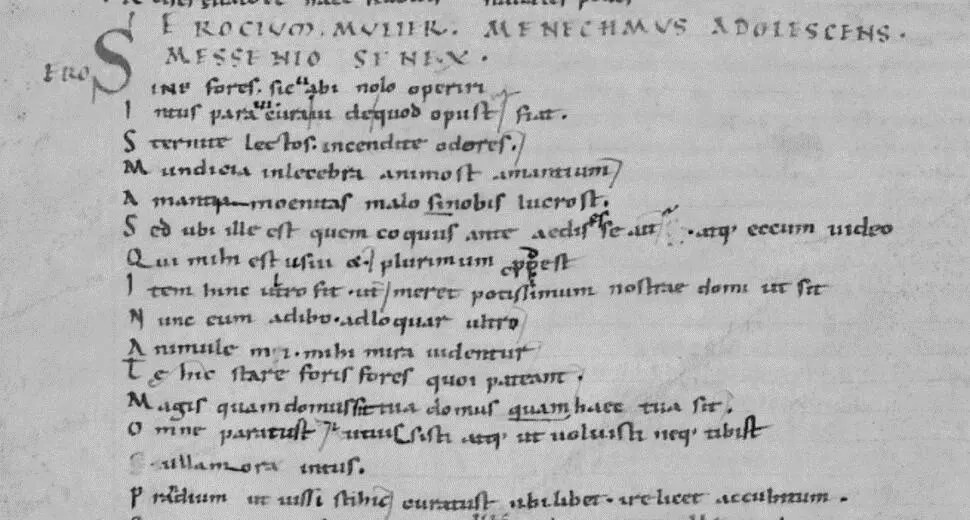 EROCIUM. MULIER. MENECHMUS ADOLESCENS.
ERO MESSENIO SENEX.
Sine fores. sic abi nolo operiri
Intus para cura dequod opust fiat.
Sternite lectos. incendite odores.
Mundicia inlecebra animost amantium
Amanti moenitas malo sinobis lucrost.
Sed ubi ille est quem coquus ante aedis esse ait. atq; eccum uideo
Qui mihi est usui & plurimum
Item hinc ultro fit. ut meret potissimum nostrae domi ut sit
Nunc eum adibo. adloquar ultro
Animule mi. mihi mira uidentur
Te hic stare foris fores quoi pateant.
Magis quam domus sit tua domus quam haec tua sit.
Omne paratust ut iussisti atq; ut uoluisti neq; tibist
ullamora intus.
Prandium ut iussisti hic curatust ubi libet. ire licet accubitum.